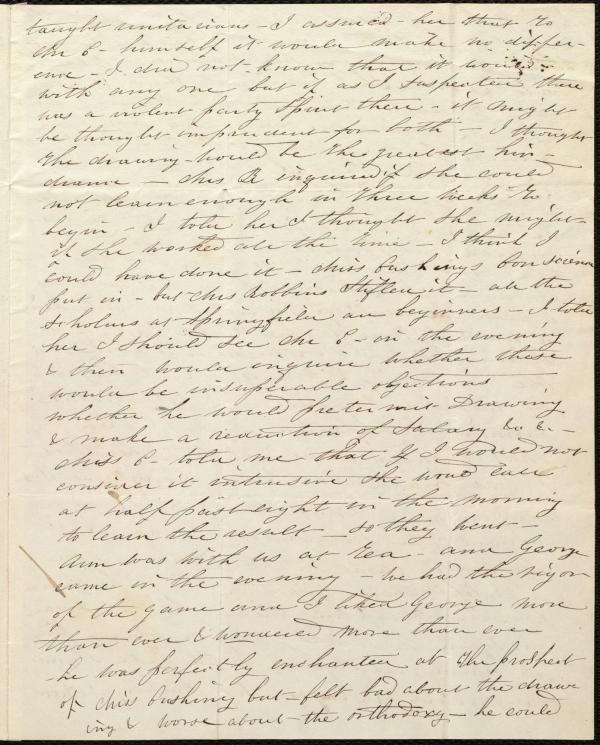 taught unitarians - I assured her that to
Mr E - himself it would make no differ-
ence - I did not know that it would
with any one but if as I suspected there
was a violent party spirit there - it might
be thought imprudent for both - I thought
the drawing would be the greatest hin-
drance - Mrs R inquired if she could
not learn enough in three weeks to
begin - I told her I thought she might
if she worked all the time - I think I
could have done it - Miss Cushings conscience
put in - but Mrs Robbins stifled it - all the
scholars at Springfield are beginners - I told
her I should see Mr E - in the evening
& then would inquire whether these
would be insuperable objections
whether he would pretermit Drawing
& make a reduction of Salary &c &c -
Miss C - told me that if I would not
consider it intrusive she would call
at half past eight in the morning
to learn the result - so they went -
Ann was with us at tea - and George
came in the evening - we had the rigor
of the game and I liked George more
than ever & wondered more than ever
- he was perfectly enchanted at the prospect
of Miss Cushing but felt bad about the draw
ing & worse about the orthodoxy - he could